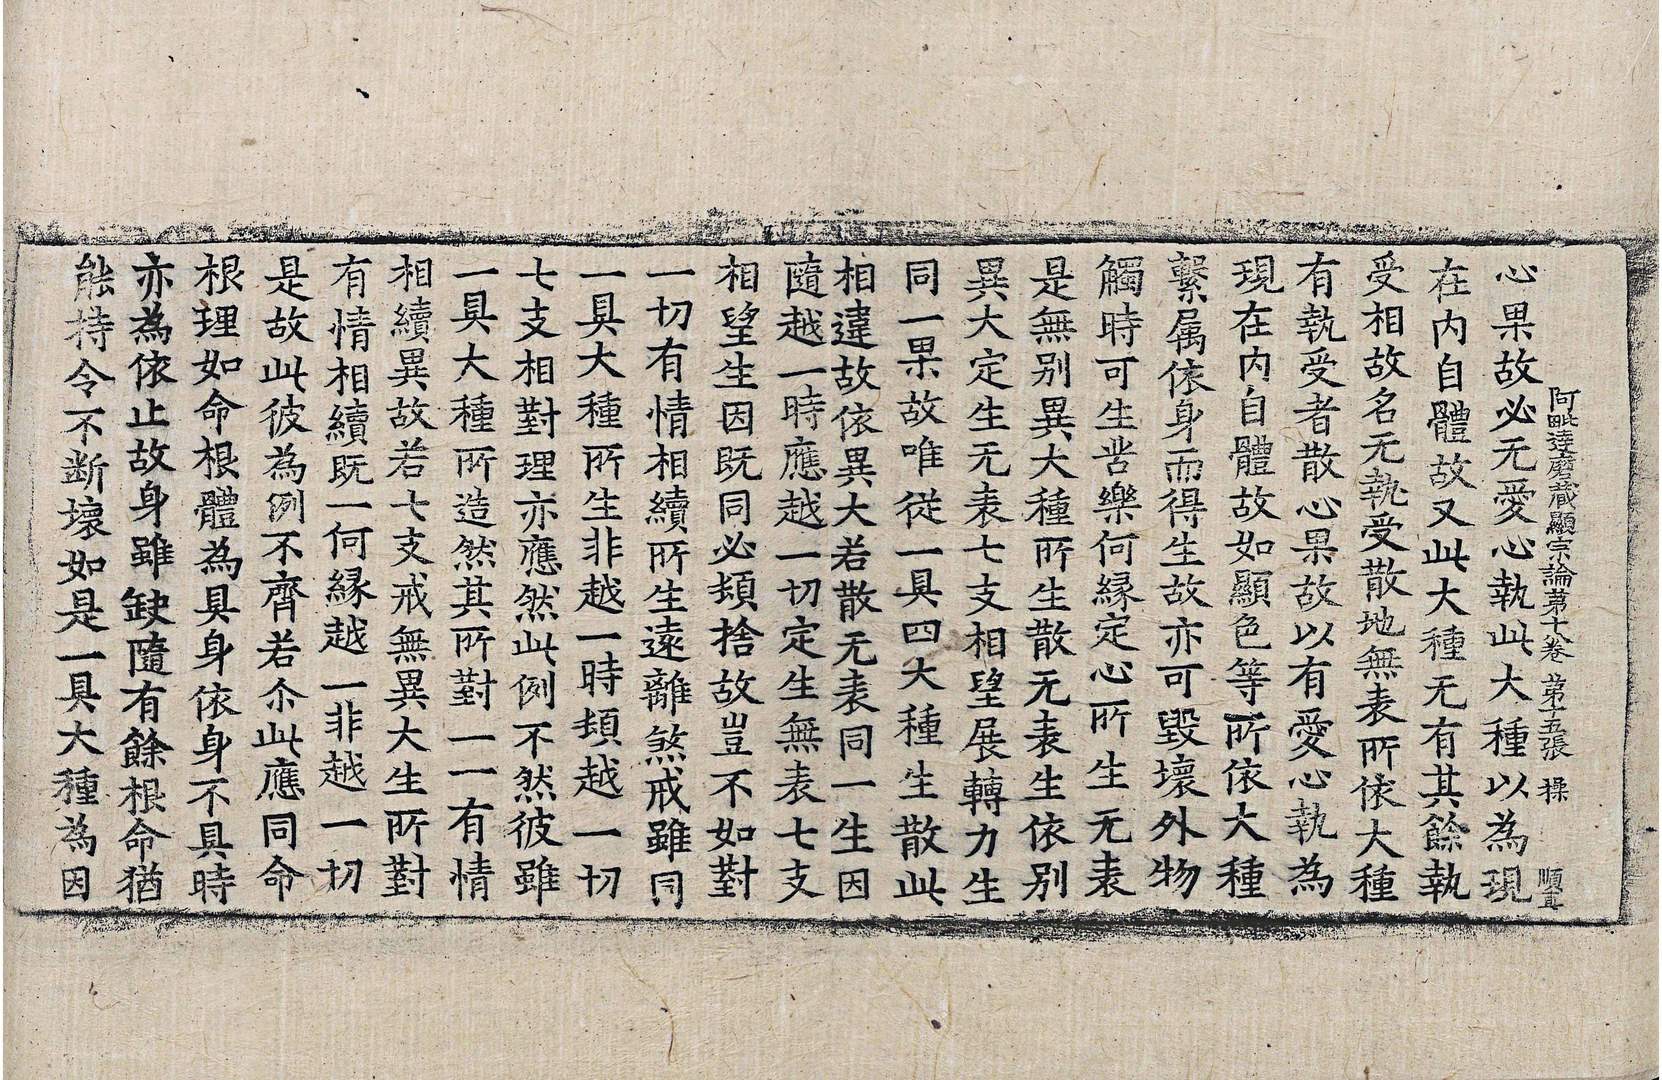 阿毗達磨藏顯宗論第十卷 第五張 操 順孟
心果故必无愛心執此大種以為現
在內自體故又此大種无有其餘執
受相故名无執受散地無表所依大種
有執受者散心果故以有愛心執為
現在內自體故如顯色等所依大種
繫属依身而得生故亦可毀壞外物
觸時可生苦樂何緣定心所生无表
是無別異大種所生散无表生依別
異大定生无表七支相望展轉力生
同一果故唯從一具四大種生散此
相違故依異大若散无表同一生因
隨越一時應越一切定生無表七支
相望生因既同必頓捨故豈不如對
一切有情相續所生遠離煞戒雖同
一具大種所生非越一時頓越一切
七支相對理亦應然此例不然彼雖
一具大種所造然其所對一一有情
相續異故若七支戒無異大生所對
有情相續既一何緣越一非越一切
是故此彼為例不齊若尒此應同命
根理如命根體為具身依身不具時
亦為依止故身雖缺隨有餘根命猶
能持令不断壞如是一具大種為因